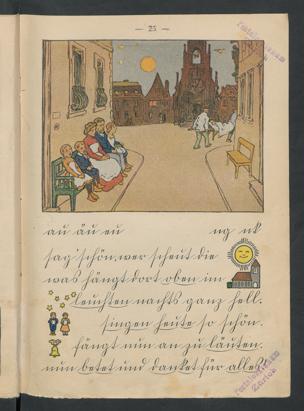 — 25 —
au äu eu ng nk
sag' schön, wer scheint die
was hängt dort oben im
Leuchten nachts ganz hell.
singen heute so schön.
fängt nun an zu läuten.
nun betet und danket für alles!